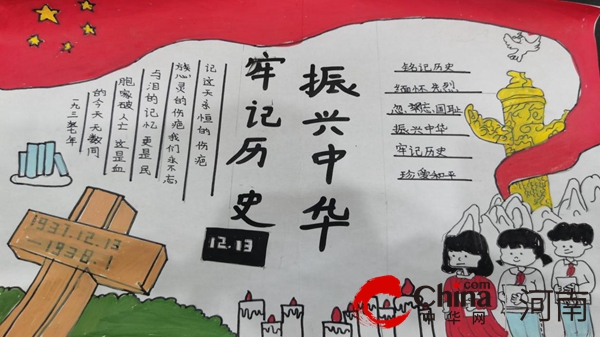 一九三七年
的今天无数同
胞家破人亡 这是血
与泪的记忆 更是民
族心灵的伤疤 我们永不忘
记这天永恒的伤疤
牢记历史
振兴中华
铭记历史
缅怀先烈
国耻
振兴中华
牢记历史
珍爱和平
1937.12.13
—1938.1
12.13
China.com
中华网
河南